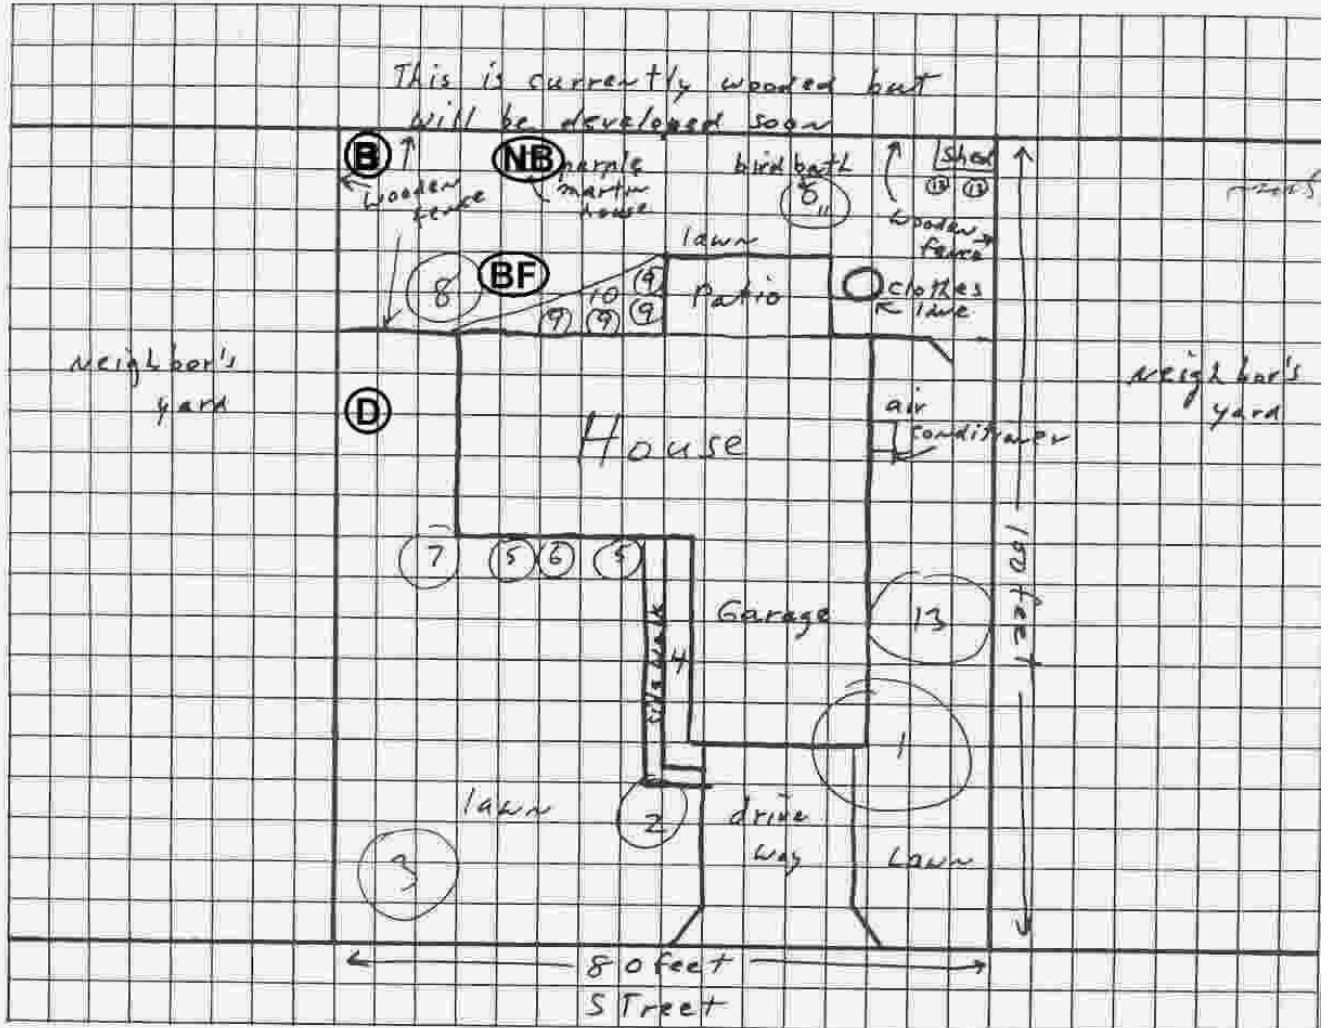 This is currently wooded but
will be developed soon
B
wooden
fence
NB
purple
martin
house
bird bath
8
11
shed
12 12
wooden
fence
lawn
8
BF
10
9
9
9
9
Patio
clothes
line
Neighbor's
yard
Neighbor's
yard
D
House
air
conditioner
7
5
6
5
sidewalk
4
Garage
13
100 feet
1
lawn
2
drive
way
Lawn
3
80 feet
STreet